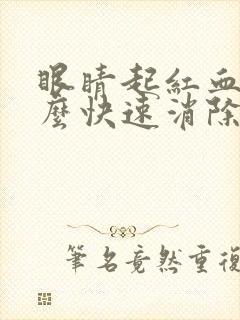 眼睛起紅血
麼快速消除
筆名竟然重複